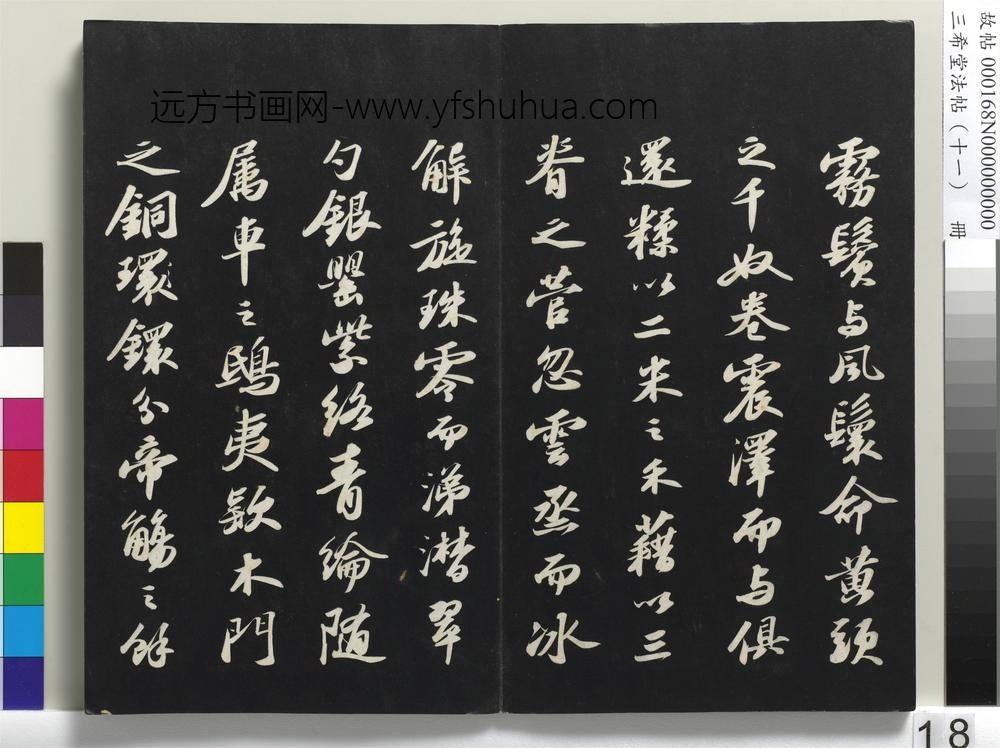 霧鬢與風鬟命黄頭
之千奴卷震澤而与俱
還糅以二米之禾藉以三
脊之菅忽雲烝而冰
解旋珠零而涕潸翠
勺銀罌紫絡青綸隨
属車之鴟夷欵木門
之銅環鐶分帝觴之餘
远方书画网-www.yfshuhua.com
故帖 000168N000000000
三希堂法帖（十一） 册
18